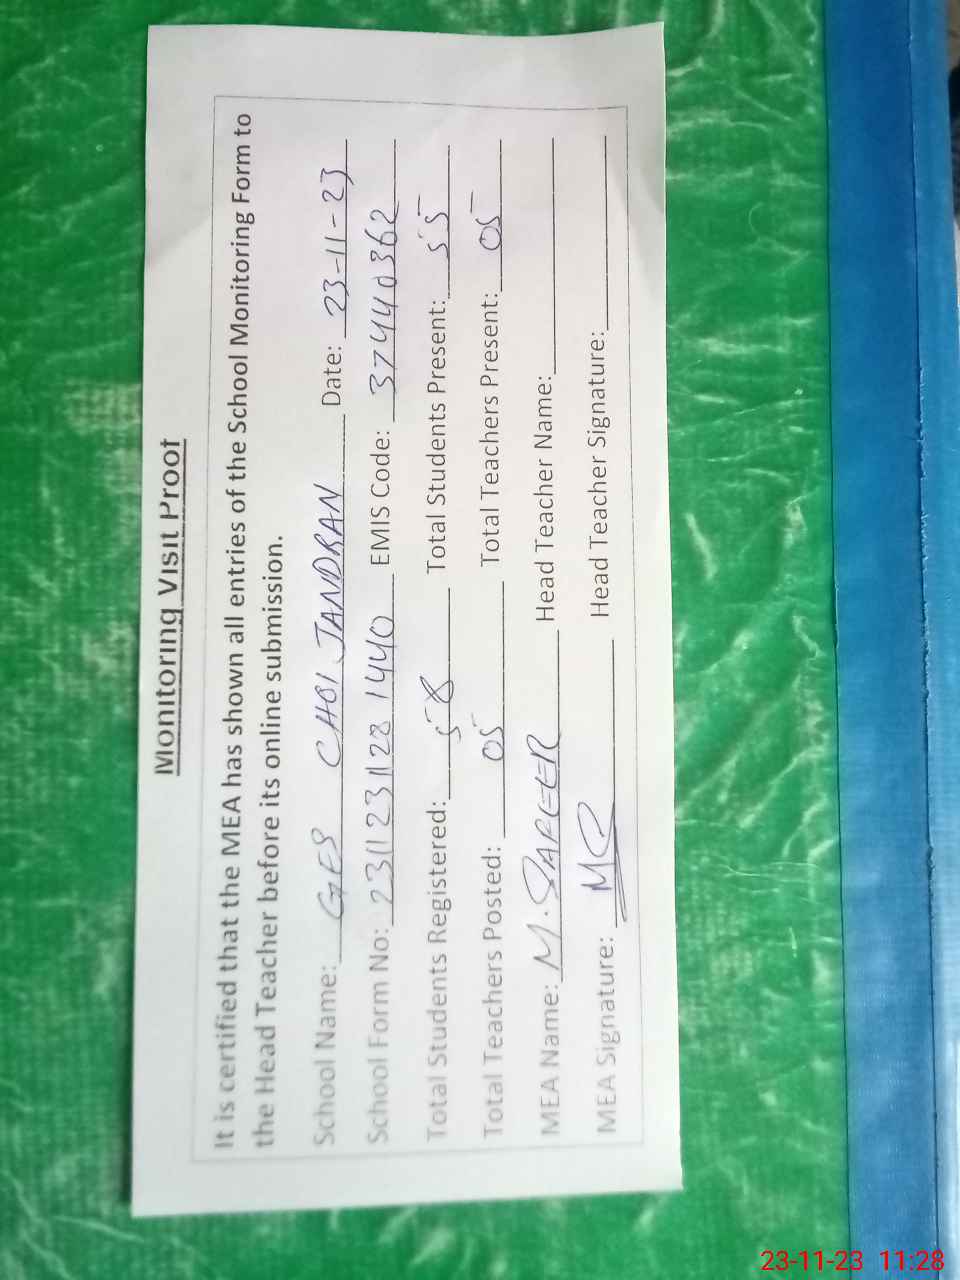 Monitoring Visit Proof
It is certified that the MEA has shown all entries of the School Monitoring Form to
the Head Teacher before its online submission.
School Name: GES CHOI JANDRAN Date: 23-11-23
School Form No: 2311231128 1440 EMIS Code: 37440362
Total Students Registered: 58 Total Students Present: 55
Total Teachers Posted: 05 Total Teachers Present: 05
MEA Name: M. SAFEER Head Teacher Name:
MEA Signature: Head Teacher Signature:
23-11-23 11:28